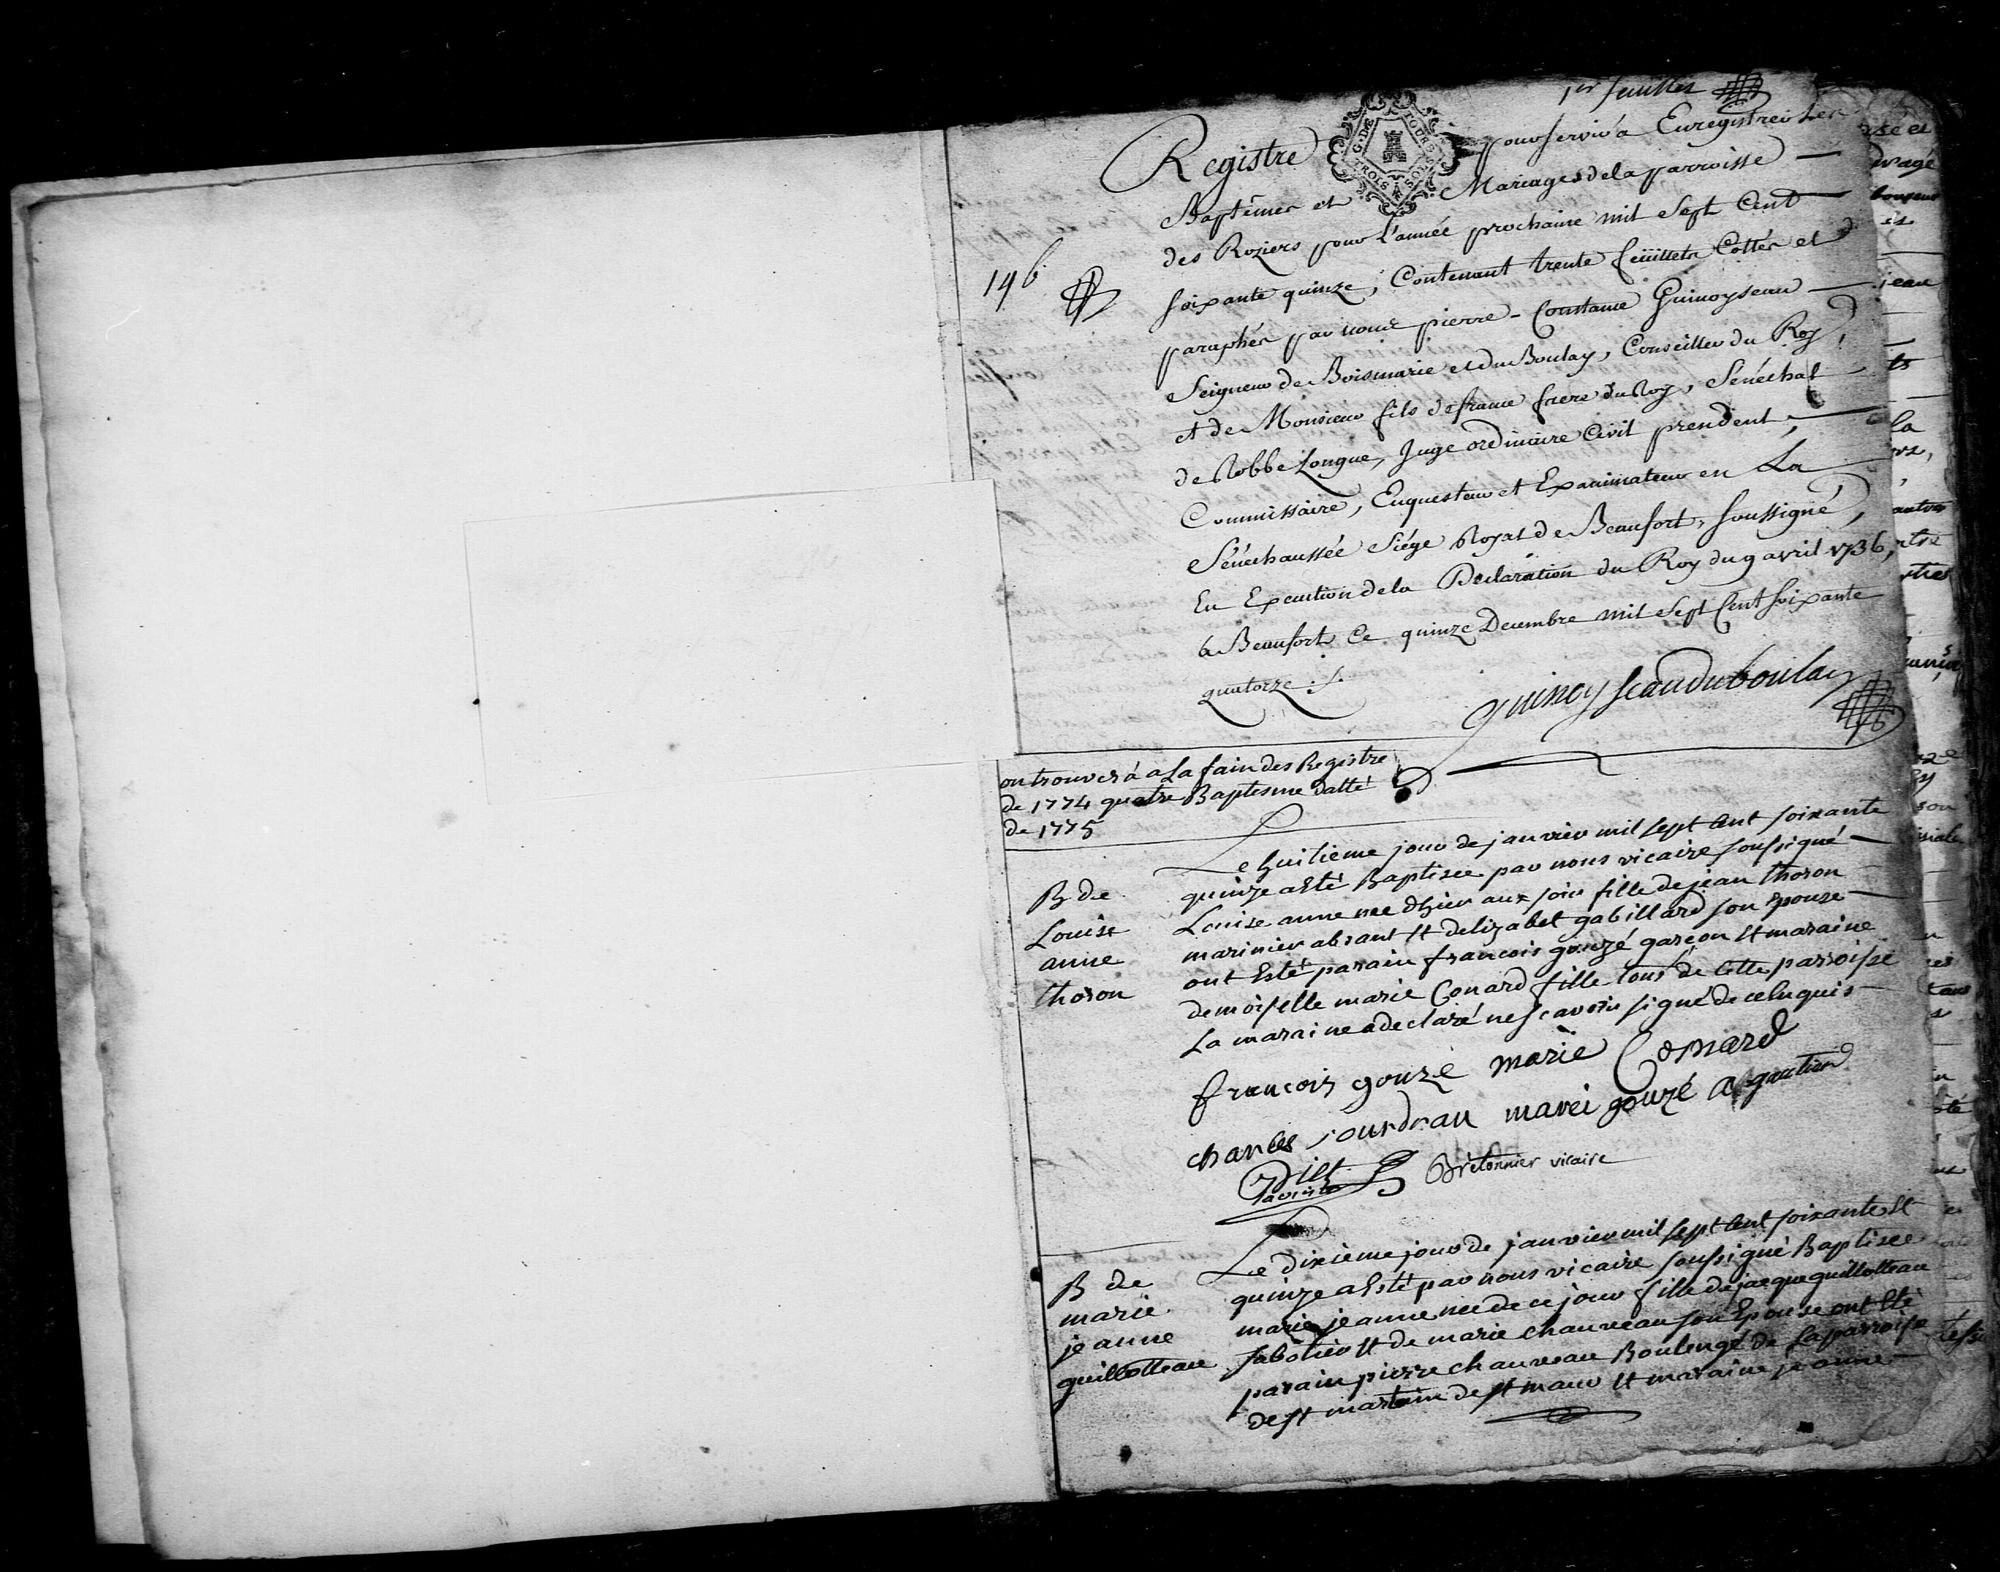 1er feuillet
Registre pour servir à Enregistrer Les
G. DE TOURS TROIS SOLS
Baptêmes et Mariages de la parroisse
des Roziers pour L'année prochaine mil Sept Cent
soixante quinze, Contenant trente feüillets Cottés et
146
paraphés par nous pierre - Constant Guinoyseau
Seigneur de Boismarie et du Boulay, Conseiller du Roy,
et de Monsieur fils de france frere du Roy, Sénéchal
de Robbe Longue, Juge ordinaire Civil prendent,
Commissaire, Enquesteur et Examinateur en La
Sénéchaussée Siége Royal de Beaufort, soussigné,
En Execution de la Déclaration du Roy du 9 avril 1736,
a Beaufort Ce quinze Decembre mil Sept Cent soixante
quatorze ./.
guinoyseau du boulay
on trouvera a La fain des Registre
de 1774 quatre Baptesme datté
de 1775
B de
Louise
anne
thoron
Le huitieme jour de janvier mil sept Cent soixante
quinze a Esté Baptisee par nous vicaire soussigné
Louise anne nee dhier aux soir fille de jean thoron
marinier absant Et delizabet gabillard son Epouse
ont Esté parain francois gouzé garcon Et maraine
demoiselle marie Conard fille tous de Cette parroisse
La maraine a declaré ne scavoir signé de ce Enquis
francois gouzé marie Conard
charles jourdeau marei gouzé gautier
Bretonnier vicaire
B de
marie
jeanne
guillotteau
Le dixieme jour de janvier mil sept Cent soixante Et
quinze a Esté par nous vicaire soussigné Baptisee
marie jeanne nee de ce jour fille de jacque guillotteau
sabotier Et de marie chauveau son Epouse ont Eté
parain pierre chauveau Boulengé de La parroisse
de st martain de st maur Et maraine jeanne